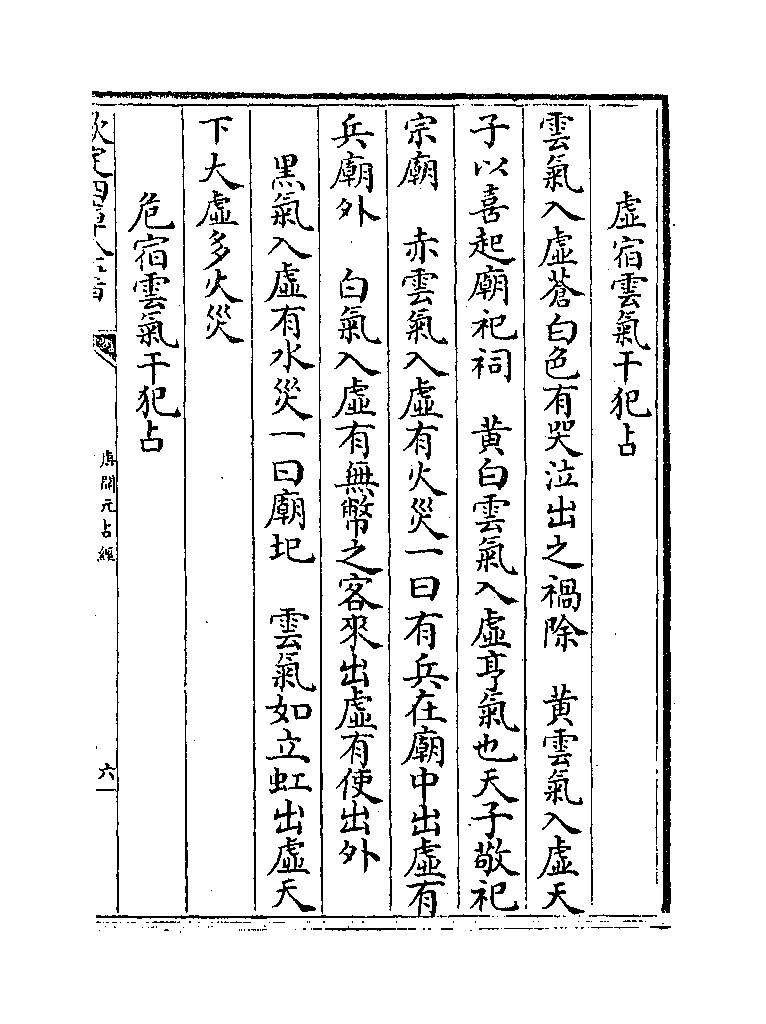 虛宿雲氣干犯占
雲氣入虛蒼白色有哭泣出之禍除　黄雲氣入虛天
子以喜起廟祀祠　黄白雲氣入虛亨氣也天子敬祀
宗廟　赤雲氣入虛有火災一曰有兵在廟中出虛有
兵廟外　白氣入虛有無幣之客來出虛有使出外
黑氣入虛有水災一曰廟圯　雲氣如立虹出虛天
下大虛多火災
危宿雲氣干犯占
欽定四庫全書
唐開元占經
六